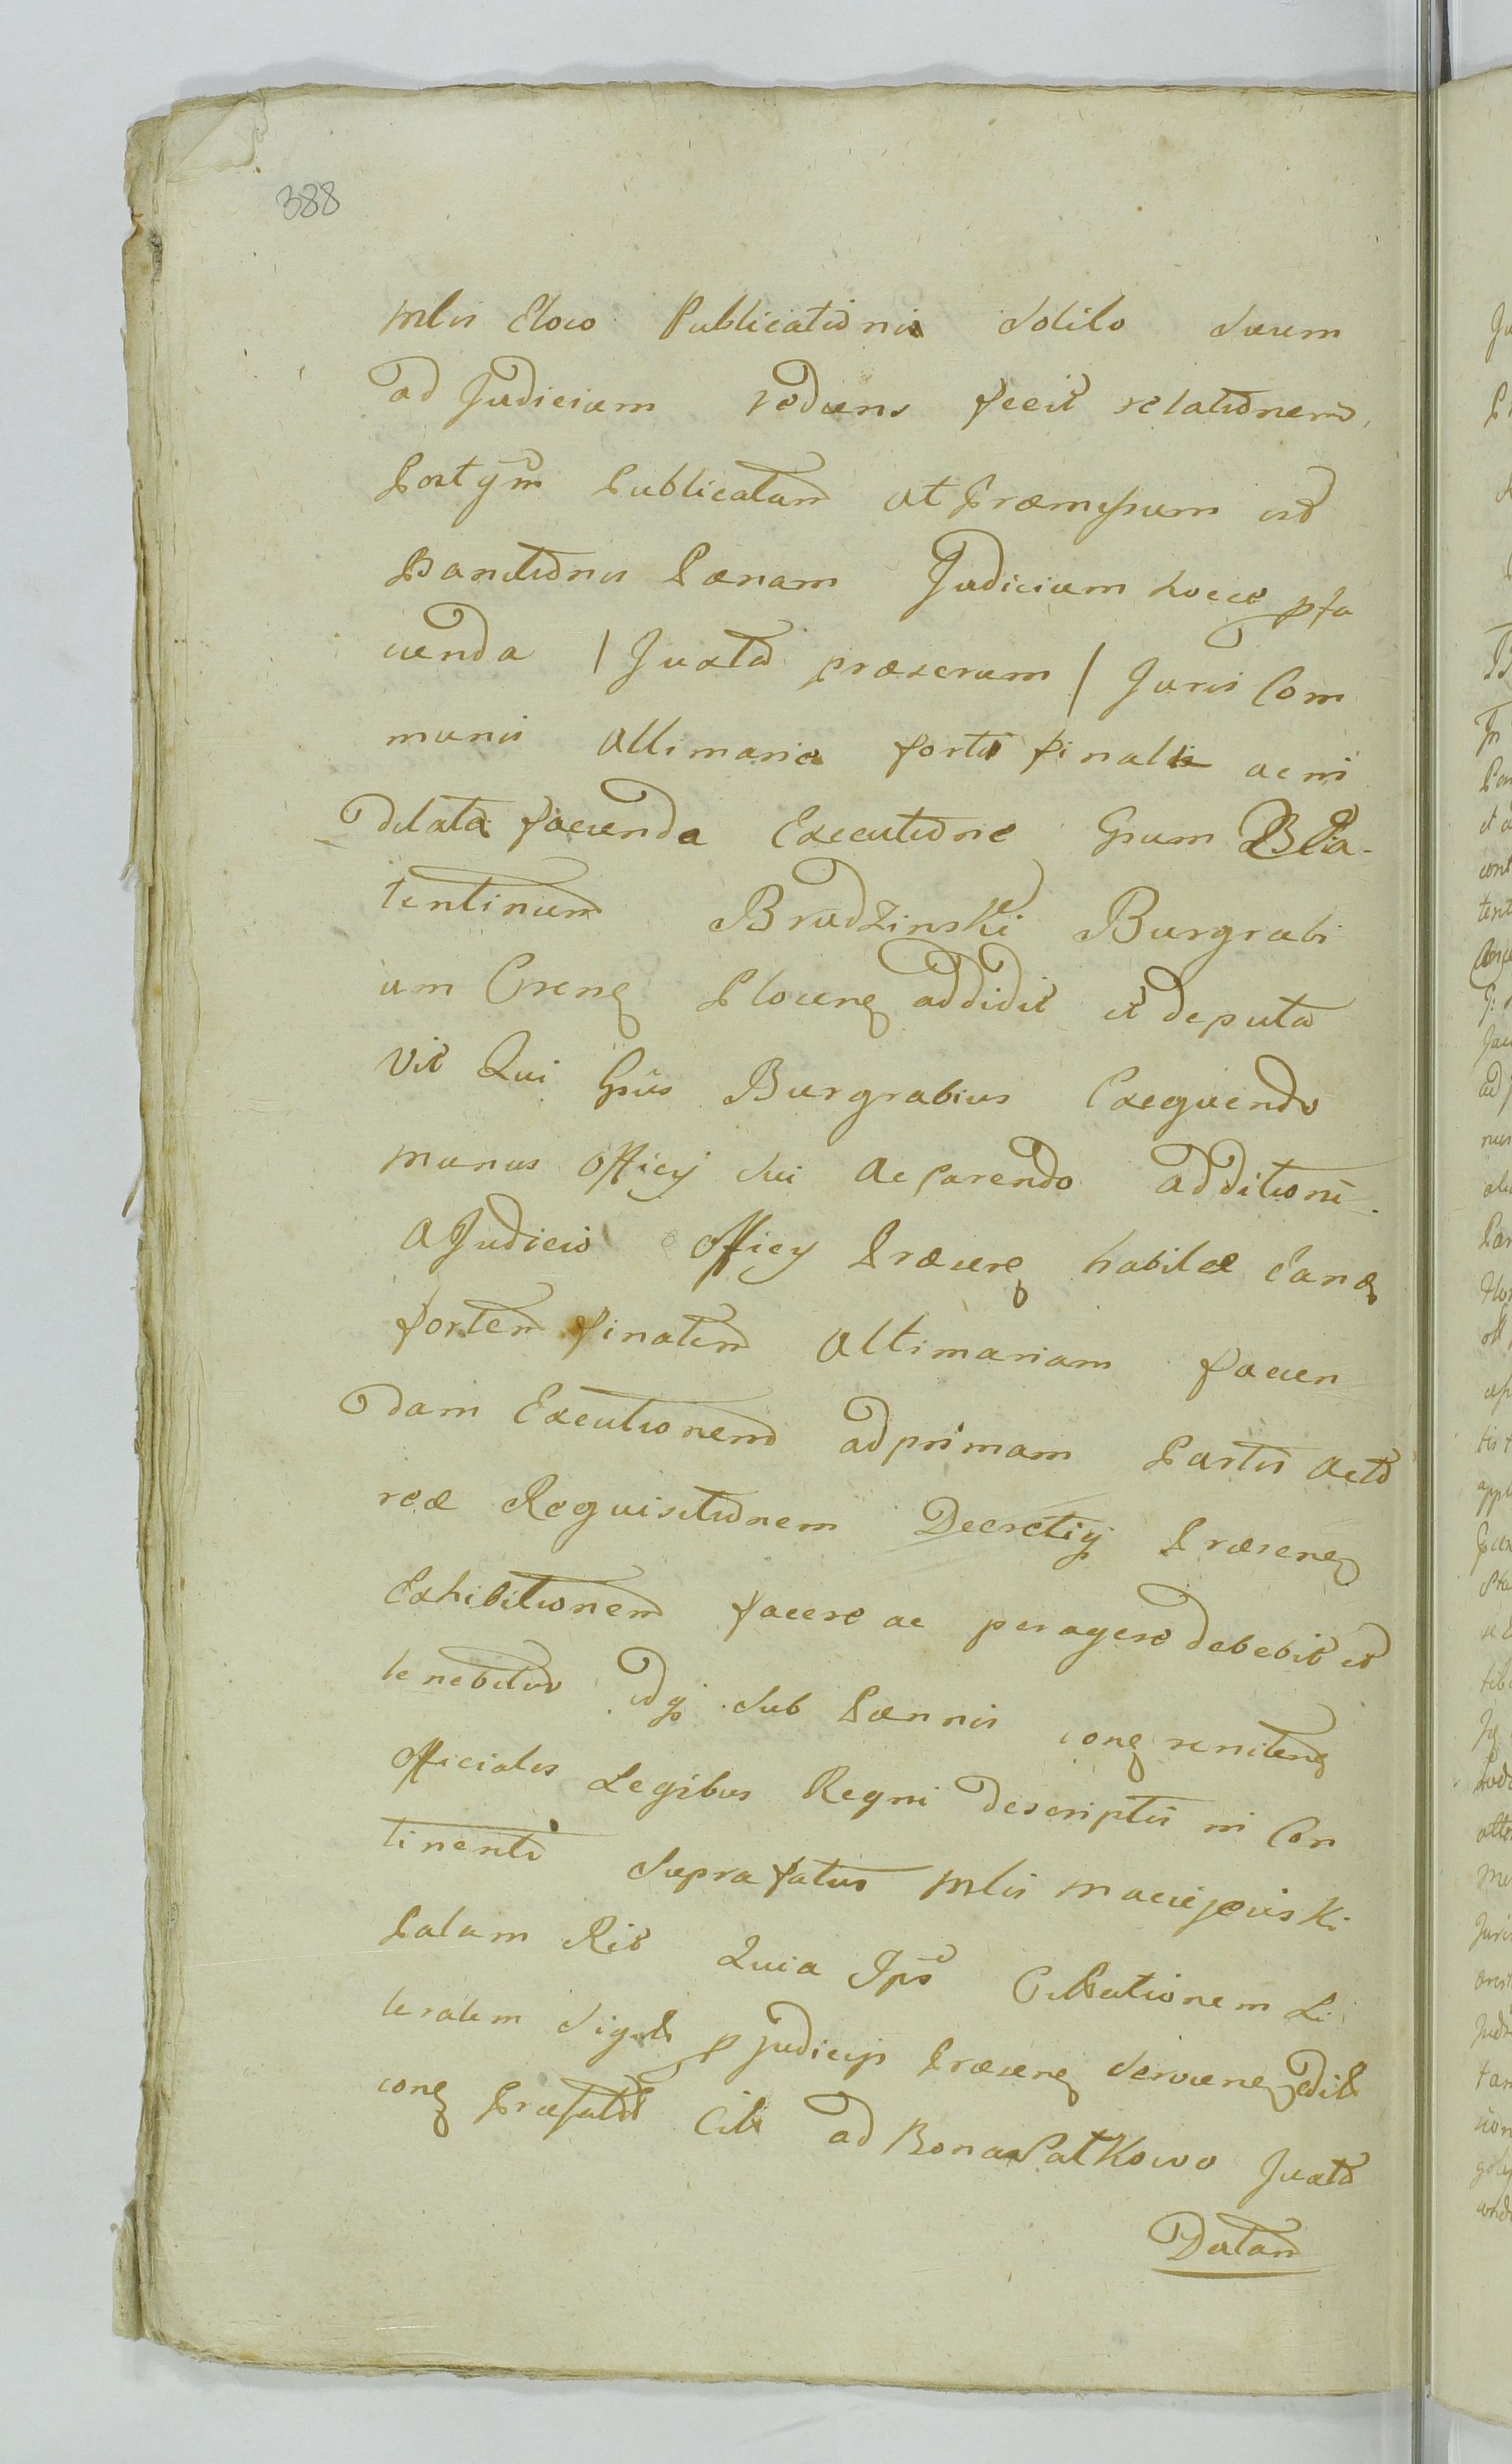 388
Mlis Eloco Publicationis Solito Suum
ad Judicium rediens fecit relationem,
Post qm̄ Publicatam ut Præmissum est
Banitionis Pænam Judicium hocce pfa
cienda / Juxta præscrum / Juris Com
munis Ultimaria fortis finalis ac in
dilata facienda Executione Gsum Bla-
tentinum Brudzinski Burgrabi
um Crens Plocens addidit et deputa
vit Qui Gsus Burgrabius Exequendo
munus Officij Sui Ac Parendo additioni
A Judicio Officij Præsens habitæ Eans
fortem finalem Ultimariam facien
dam Executionem ad primam Partis Acto
reæ Requisitionem Decretiq Præsens
Exhibitionem facere ac peragere debebit et
tenebitur idq Sub Pænnis cons renitens
Officiales Legibus Regni descriptis in Con
tinenti Suprafatus Mlis Maciejewski
Palam Rit Quia Ips̄e Citationem Li
teralem Sigil p Judicijs Præsens Serviens Edit
cons Præfatos Citt ad Bona Patkowo Juxta
Datam